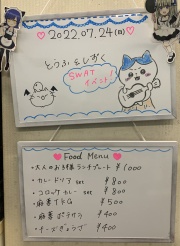 ♡2022.07.24(日)♡
とうふ&しずく
SWAT
イベント!
♡ Food Menu ♡
・大人のお子様ランチプレート ¥1000
・カレードリア set ¥800
・コロッケカレー set ¥800
・麻婆 ¥500
・麻婆ポテサラ ¥400
・チーズぎょうざ ¥400